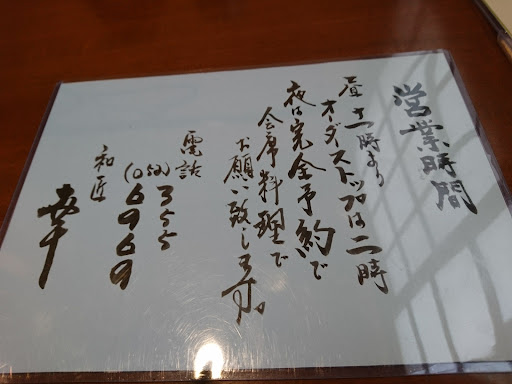 営業時間
昼 十一時より
オーダストップは二時
夜は完全予約で
会席料理で
お願い致します。
電話 355
(050) 6969
和匠